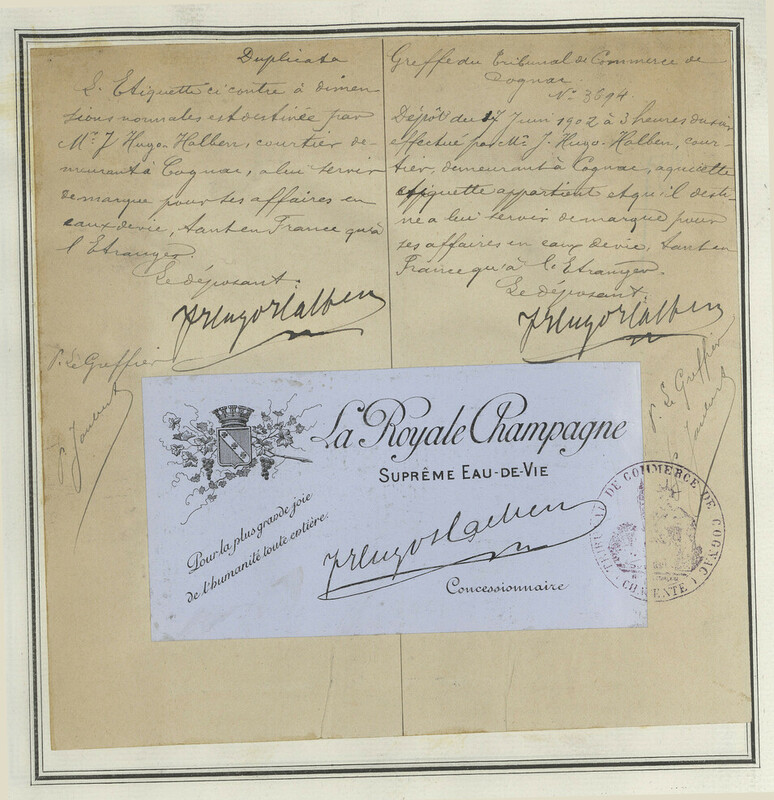 Duplicata
L'Etiquette ci contre à dimen-
sions normales est destinée par
Mr. J Hugo-Halben, courtier de-
meurant à Cognac, à lui servir
de marque pour ses affaires en
eaux de vie, tant en France qu'à
l'Etranger.
Le déposant.
JHugoHalben
P. Le Greffier
Greffe du Tribunal de Commerce de
Cognac
No. 3694.
Dépôt du 17 Juin 1902 à 3 heures du soir
effectué par Mr. J. Hugo-Halben, cour-
tier, demeurant à Cognac, à qui cette
étiquette appartient et qu'il desti-
ne à lui servir de marque pour
ses affaires en eaux de vie, tant en
France qu'à l'Etranger.
Le déposant.
JHugoHalben
P. Le Greffier
La Royale Champagne
SUPRÊME EAU-DE-VIE
Pour la plus grande joie
de l'humanité toute entière.
JHugoHalben
Concessionnaire
TRIBUNAL DE COMMERCE DE COGNAC
(CHARENTE)